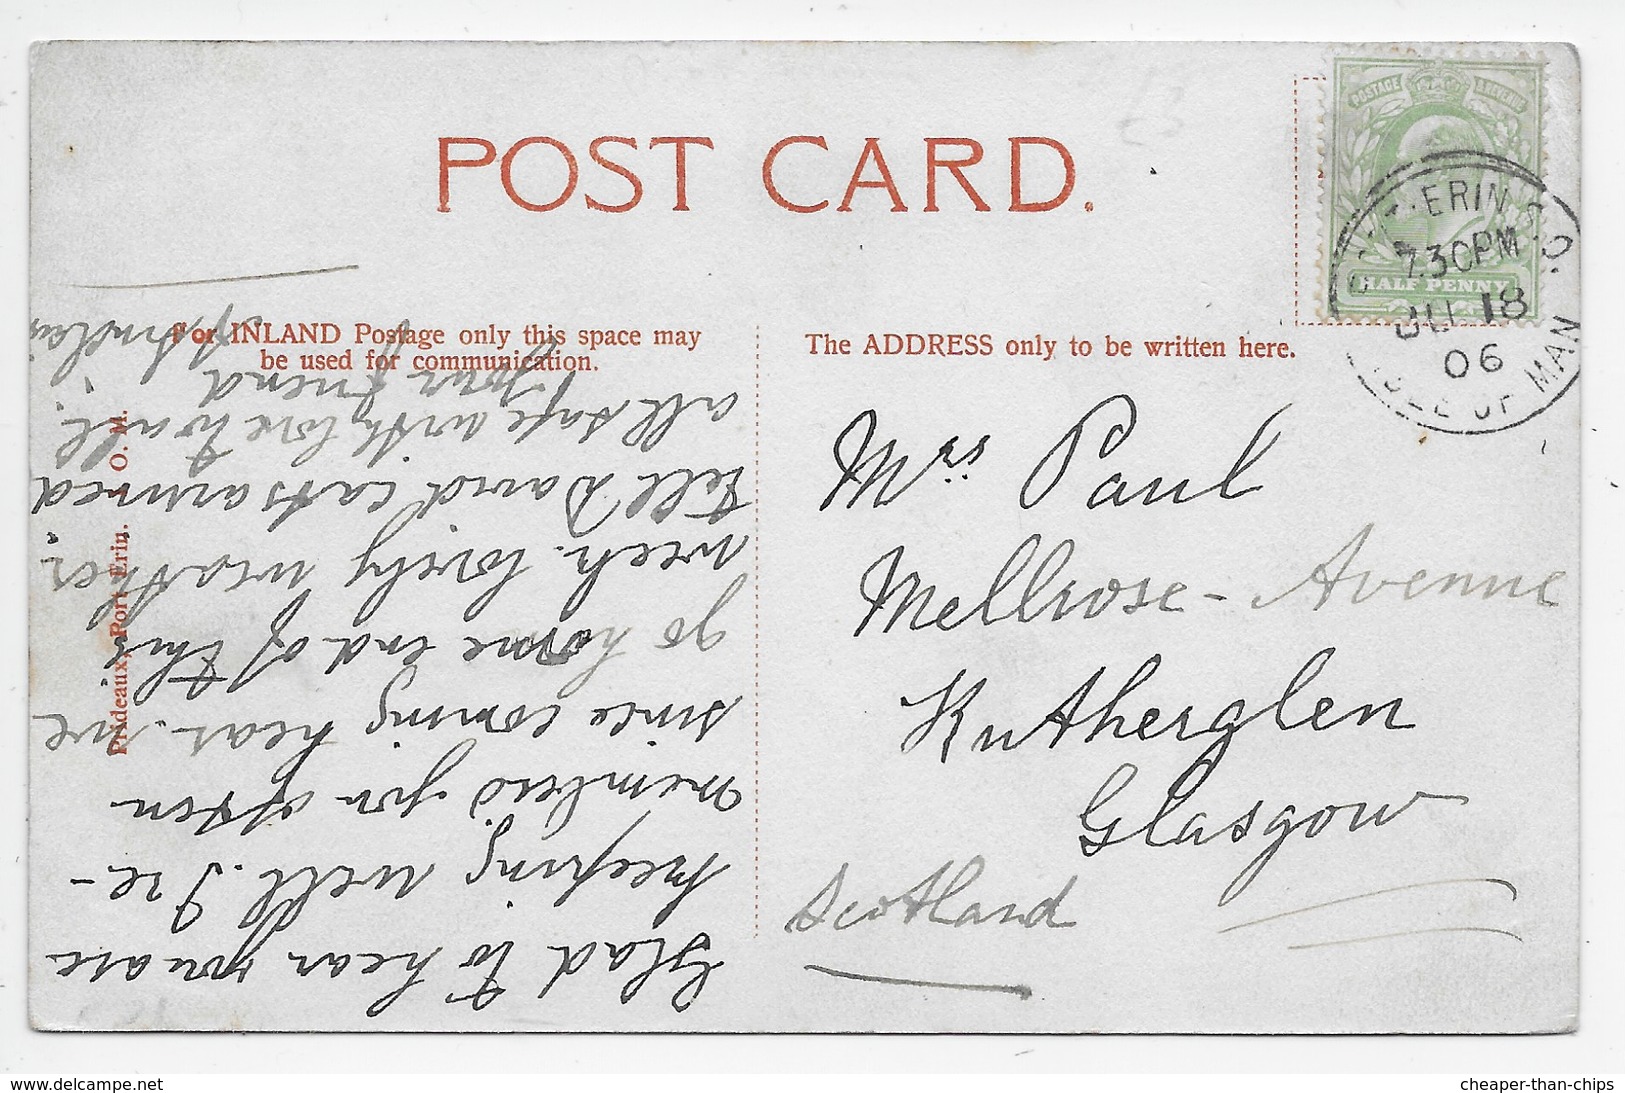 POST CARD.
POSTAGE & REVENUE
HALF PENNY
PORT-ERIN S.O.
7.30PM
JU 18
06
ISLE OF MAN
For INLAND Postage only this space may
be used for communication.
The ADDRESS only to be written here.
Prideaux, Port Erin. I. O. M.
Mrs Paul
Mellrose - Avenue
Rutherglen
Glasgow
Scotland
Glad to hear you are
keeping well. I re-
members you often
since coming hear. we
go home end of this
week. lovely weather.
tell David cats arrived
all safe with love to all.
your friend
delcampe.net
cheaper-than-chips